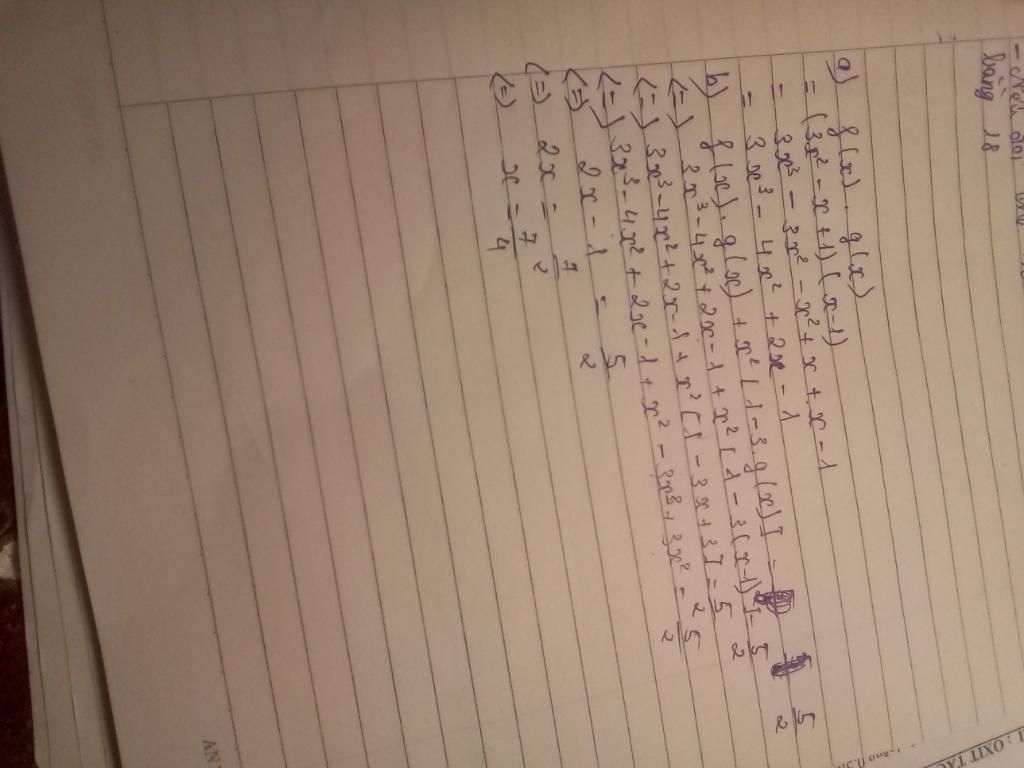 a) f(x) . g(x)
= (3x² - x + 1) (x - 1)
= 3x³ - 3x² - x² + x + x - 1
= 3x³ - 4x² + 2x - 1
b) f(x) . g(x) + x² [1 - 3 g(x)] = 5/2
(=) 3x³ - 4x² + 2x - 1 + x² [1 - 3(x-1)] = 5/2
(=) 3x³ - 4x² + 2x - 1 + x² [1 - 3x + 3] = 5/2
(=) 3x³ - 4x² + 2x - 1 + x² - 3x³ + 3x² = 5/2
(=) 2x - 1 = 5/2
(=) 2x = 7/2
(=) x = 7/4
: OXIT TÁC
AN